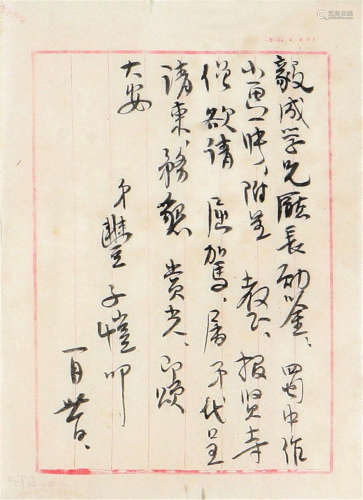 毅成学兄厅长勋鉴、蜀中作
小画一帧、附呈 教正、报贤寺
僧欲请 屈驾、属弟代呈
请柬、务恳 赏光、即颂
大安
弟丰子恺叩
一月廿日、